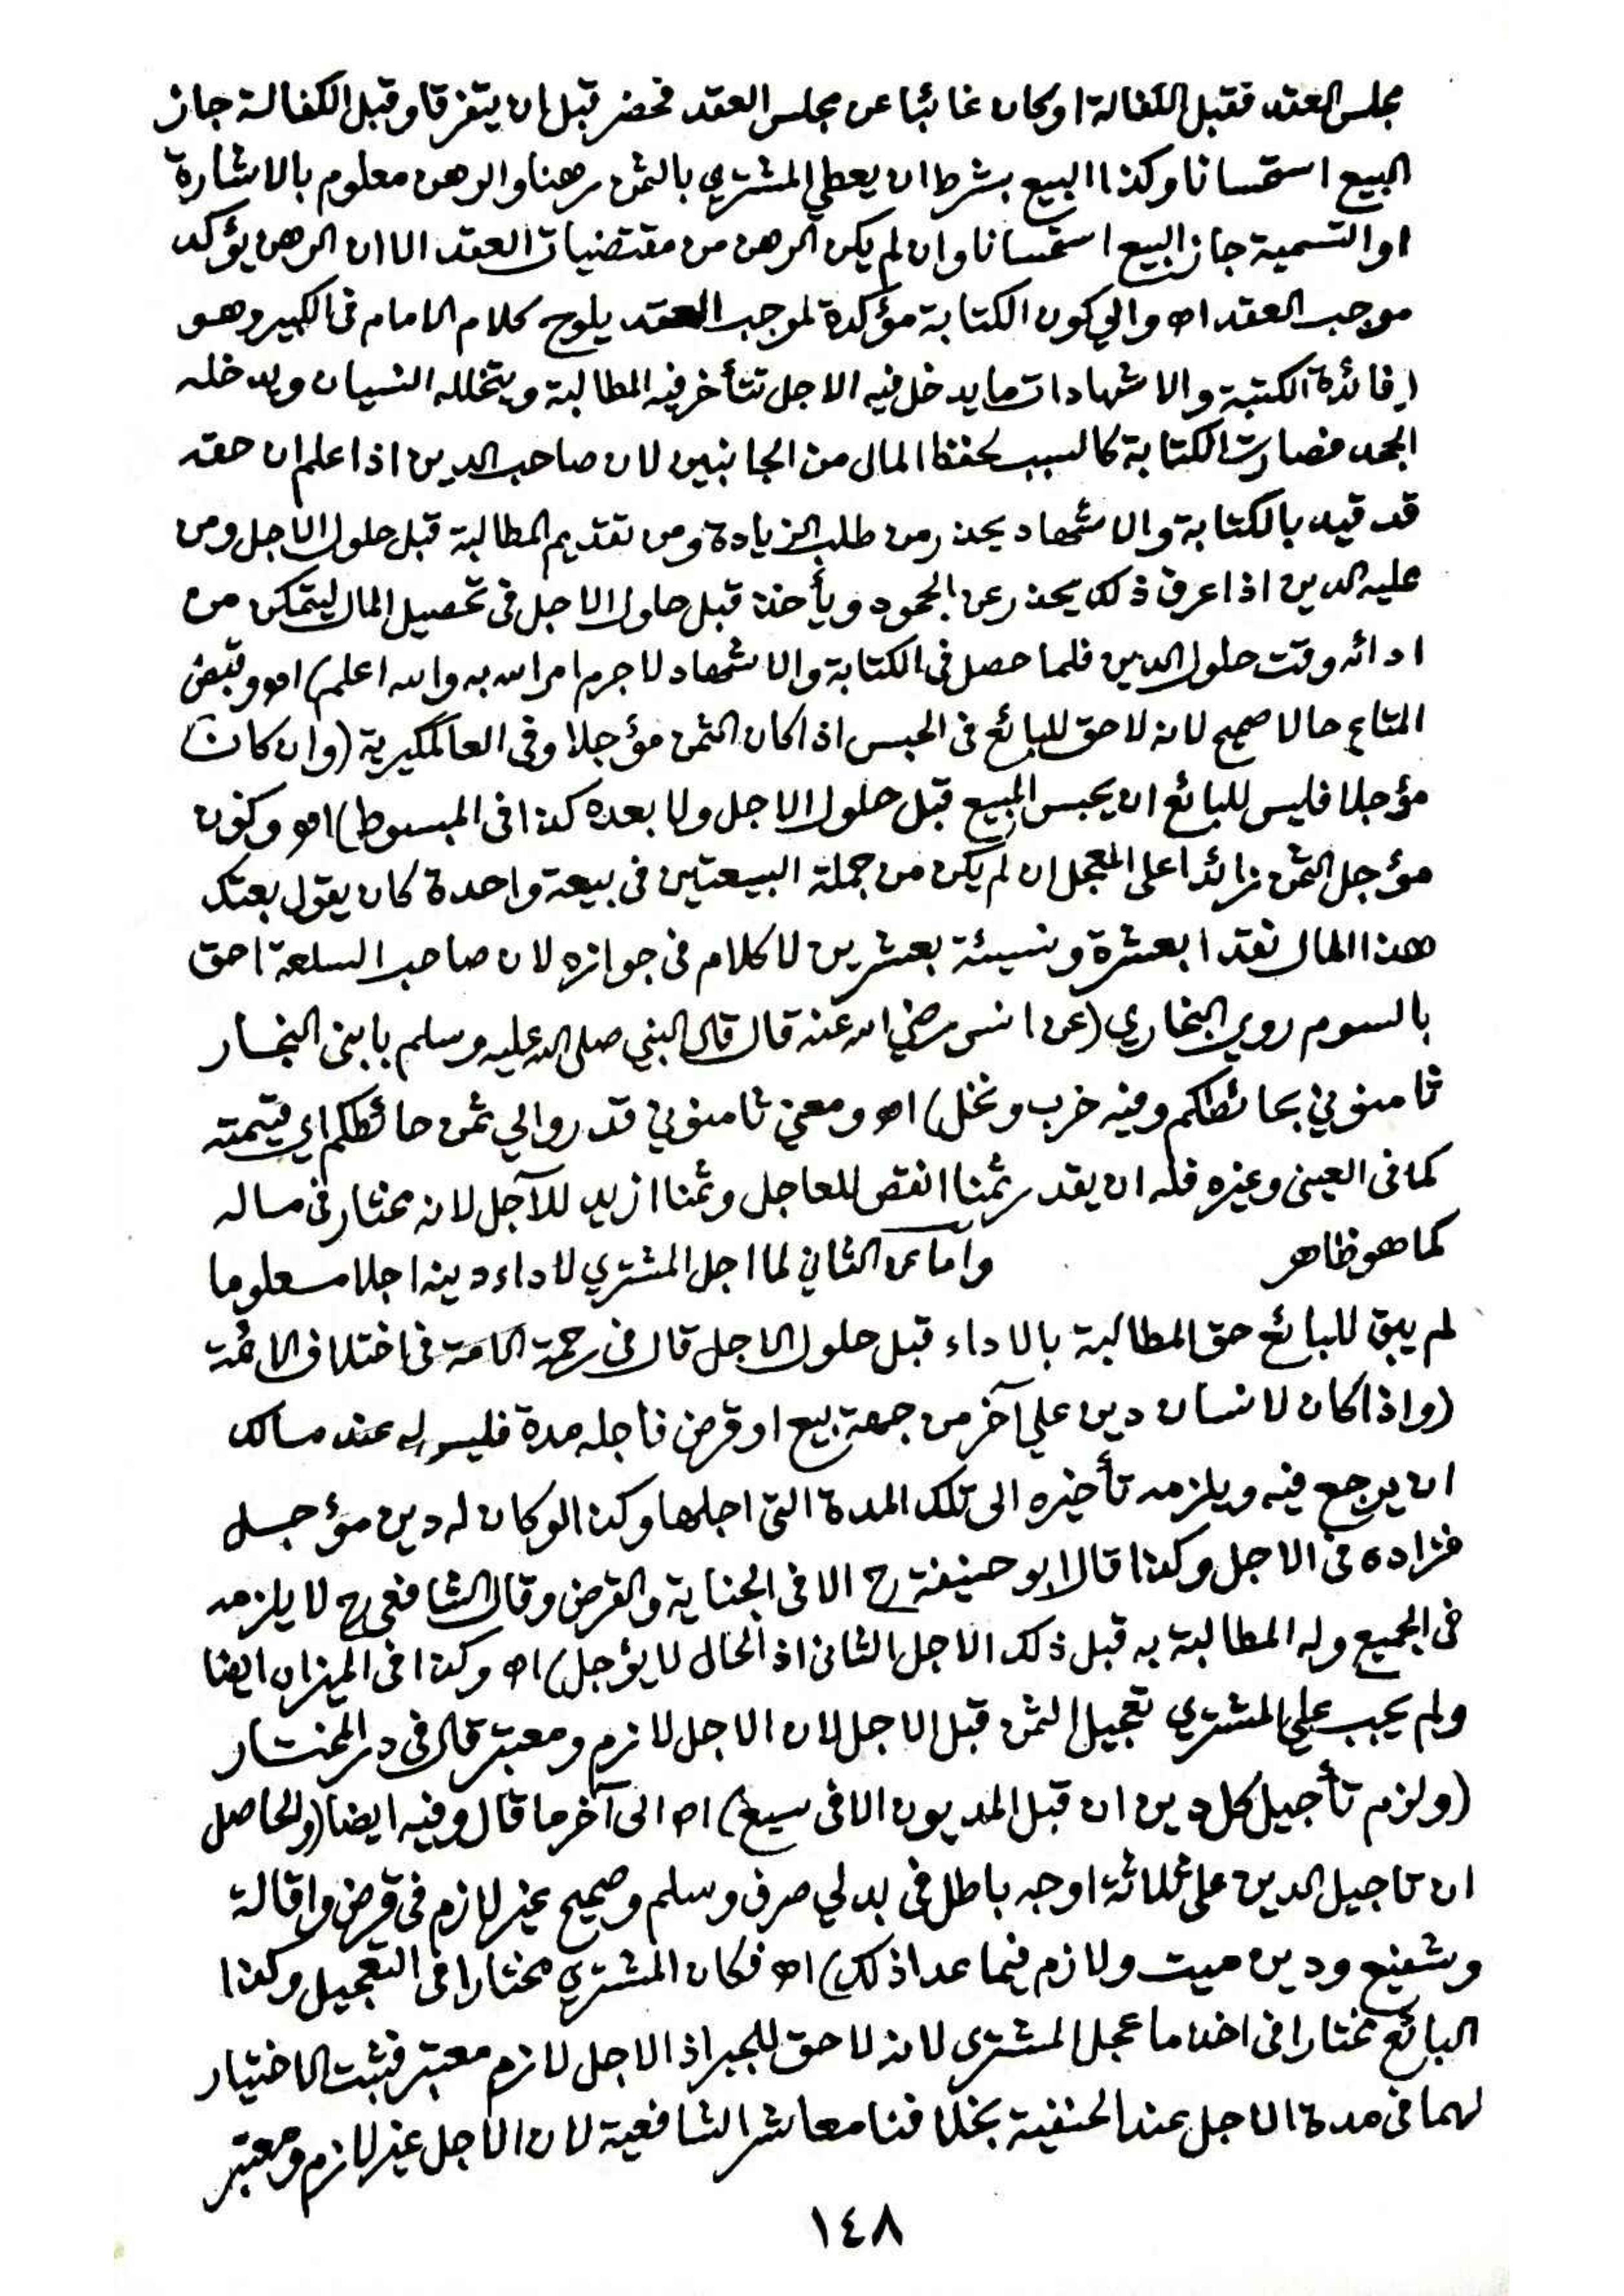 مجلس العقد فقبل الكفالة او كان غائبا عن مجلس العقد فحضر قبل ان يتفرقا وقبل الكفالة جاز
البيع استحسانا وكذا البيع بشرط ان يعطي المشتري بالثمن رهنا والرهن معلوم بالاشارة
او التسمية جاز البيع استحسانا وان لم يكن الرهن من مقتضيات العقد الا ان الرهن يؤكد
موجب العقد اه والي كون الكتابة مؤكدة لموجب العقد يلوح كلام الامام في الكبير وهو
(فائدة الكتبة والاشهاد ان ما يدخل فيه الاجل تتأخر فيه المطالبة ويتخلله النسيان ويدخله
الجحد فصارت الكتابة كالسبب لحفظ المال من الجانبين لان صاحب الدين اذا علم ان حقه
قد قيد بالكتابة والاشهاد يحذر من طلب الزيادة ومن تقديم المطالبة قبل حلول الاجل ومن
عليه الدين اذا عرف ذلك يحذر عن الجحود ويأخذ قبل حلول الاجل في تحصيل المال ليتمكن من
ادائه وقت حلول الدين فلما حصل في الكتابة والاشهاد لا جرم امر الله به والله اعلم) اه وقبض
المتاع حالا صحيح لانه لا حق للبائع في الحبس اذا كان الثمن مؤجلا وفي العالمگيرية (وان كان
مؤجلا فليس للبائع ان يحبس المبيع قبل حلول الاجل ولا بعده كذا في المبسوط) اه وكون
مؤجل الثمن زائدا على المعجل ان لم يكن من جملة البيعتين في بيعة واحدة كان يقول بعتك
هذا المال نقدا بعشرة ونسيئة بعشرين لا كلام في جوازه لان صاحب السلعة احق
بالسوم روي البخاري (عن انس رضي الله عنه قال قال النبي صلى الله عليه وسلم يا بني النجار
ثامنوني بحائطكم وفيه خرب ونخل) اه ومعني ثامنوني قدروا لي ثمن حائطكم اي قيمته
كما في العيني وغيره فله ان يقدر ثمنا انقص للعاجل وثمنا ازيد للآجل لانه مختار في ماله
كما هو ظاهر وأما عن الثاني لما اجل المشتري لاداء دينه اجلا معلوما
لم يبق للبائع حق المطالبة بالاداء قبل حلول الاجل قال في رحمة الامة في اختلاف الائمة
(واذا كان لانسان دين علي آخر من جهة بيع او قرض فاجله مدة فليس له عند مالك
ان يرجع فيه ويلزمه تأخيره الى تلك المدة التي اجلها وكذا لو كان له دين مؤجل
فزاده في الاجل وكذا قال ابو حنيفة رح الا في الجناية والقرض وقال الشافعي رح لا يلزمه
في الجميع وله المطالبة به قبل ذلك الاجل الثاني اذ الحال لا يؤجل) اه وكذا في الميزان ايضا
ولم يجب علي المشتري تعجيل الثمن قبل الاجل لان الاجل لازم ومعتبر قال في در المختار
(ولزم تأجيل كل دين ان قبل المديون الا في سبع) اه الى آخر ما قال وفيه ايضا (والحاصل
ان تاجيل الدين على ثلاثة اوجه باطل في بدلي صرف وسلم وصحيح غير لازم في قرض واقالة
وشفيع ودين ميت ولازم فيما عدا ذلك) اه فكان المشتري مختارا في التعجيل وكذا
البائع مختارا في اخذ ما عجل المشتري لانه لا حق للجبر اذ الاجل لازم معتبر فثبت الاختيار
لهما في مدة الاجل عند الحنفية بخلافنا معاشر الشافعية لان الاجل غير لازم ومعتبر
١٤٨